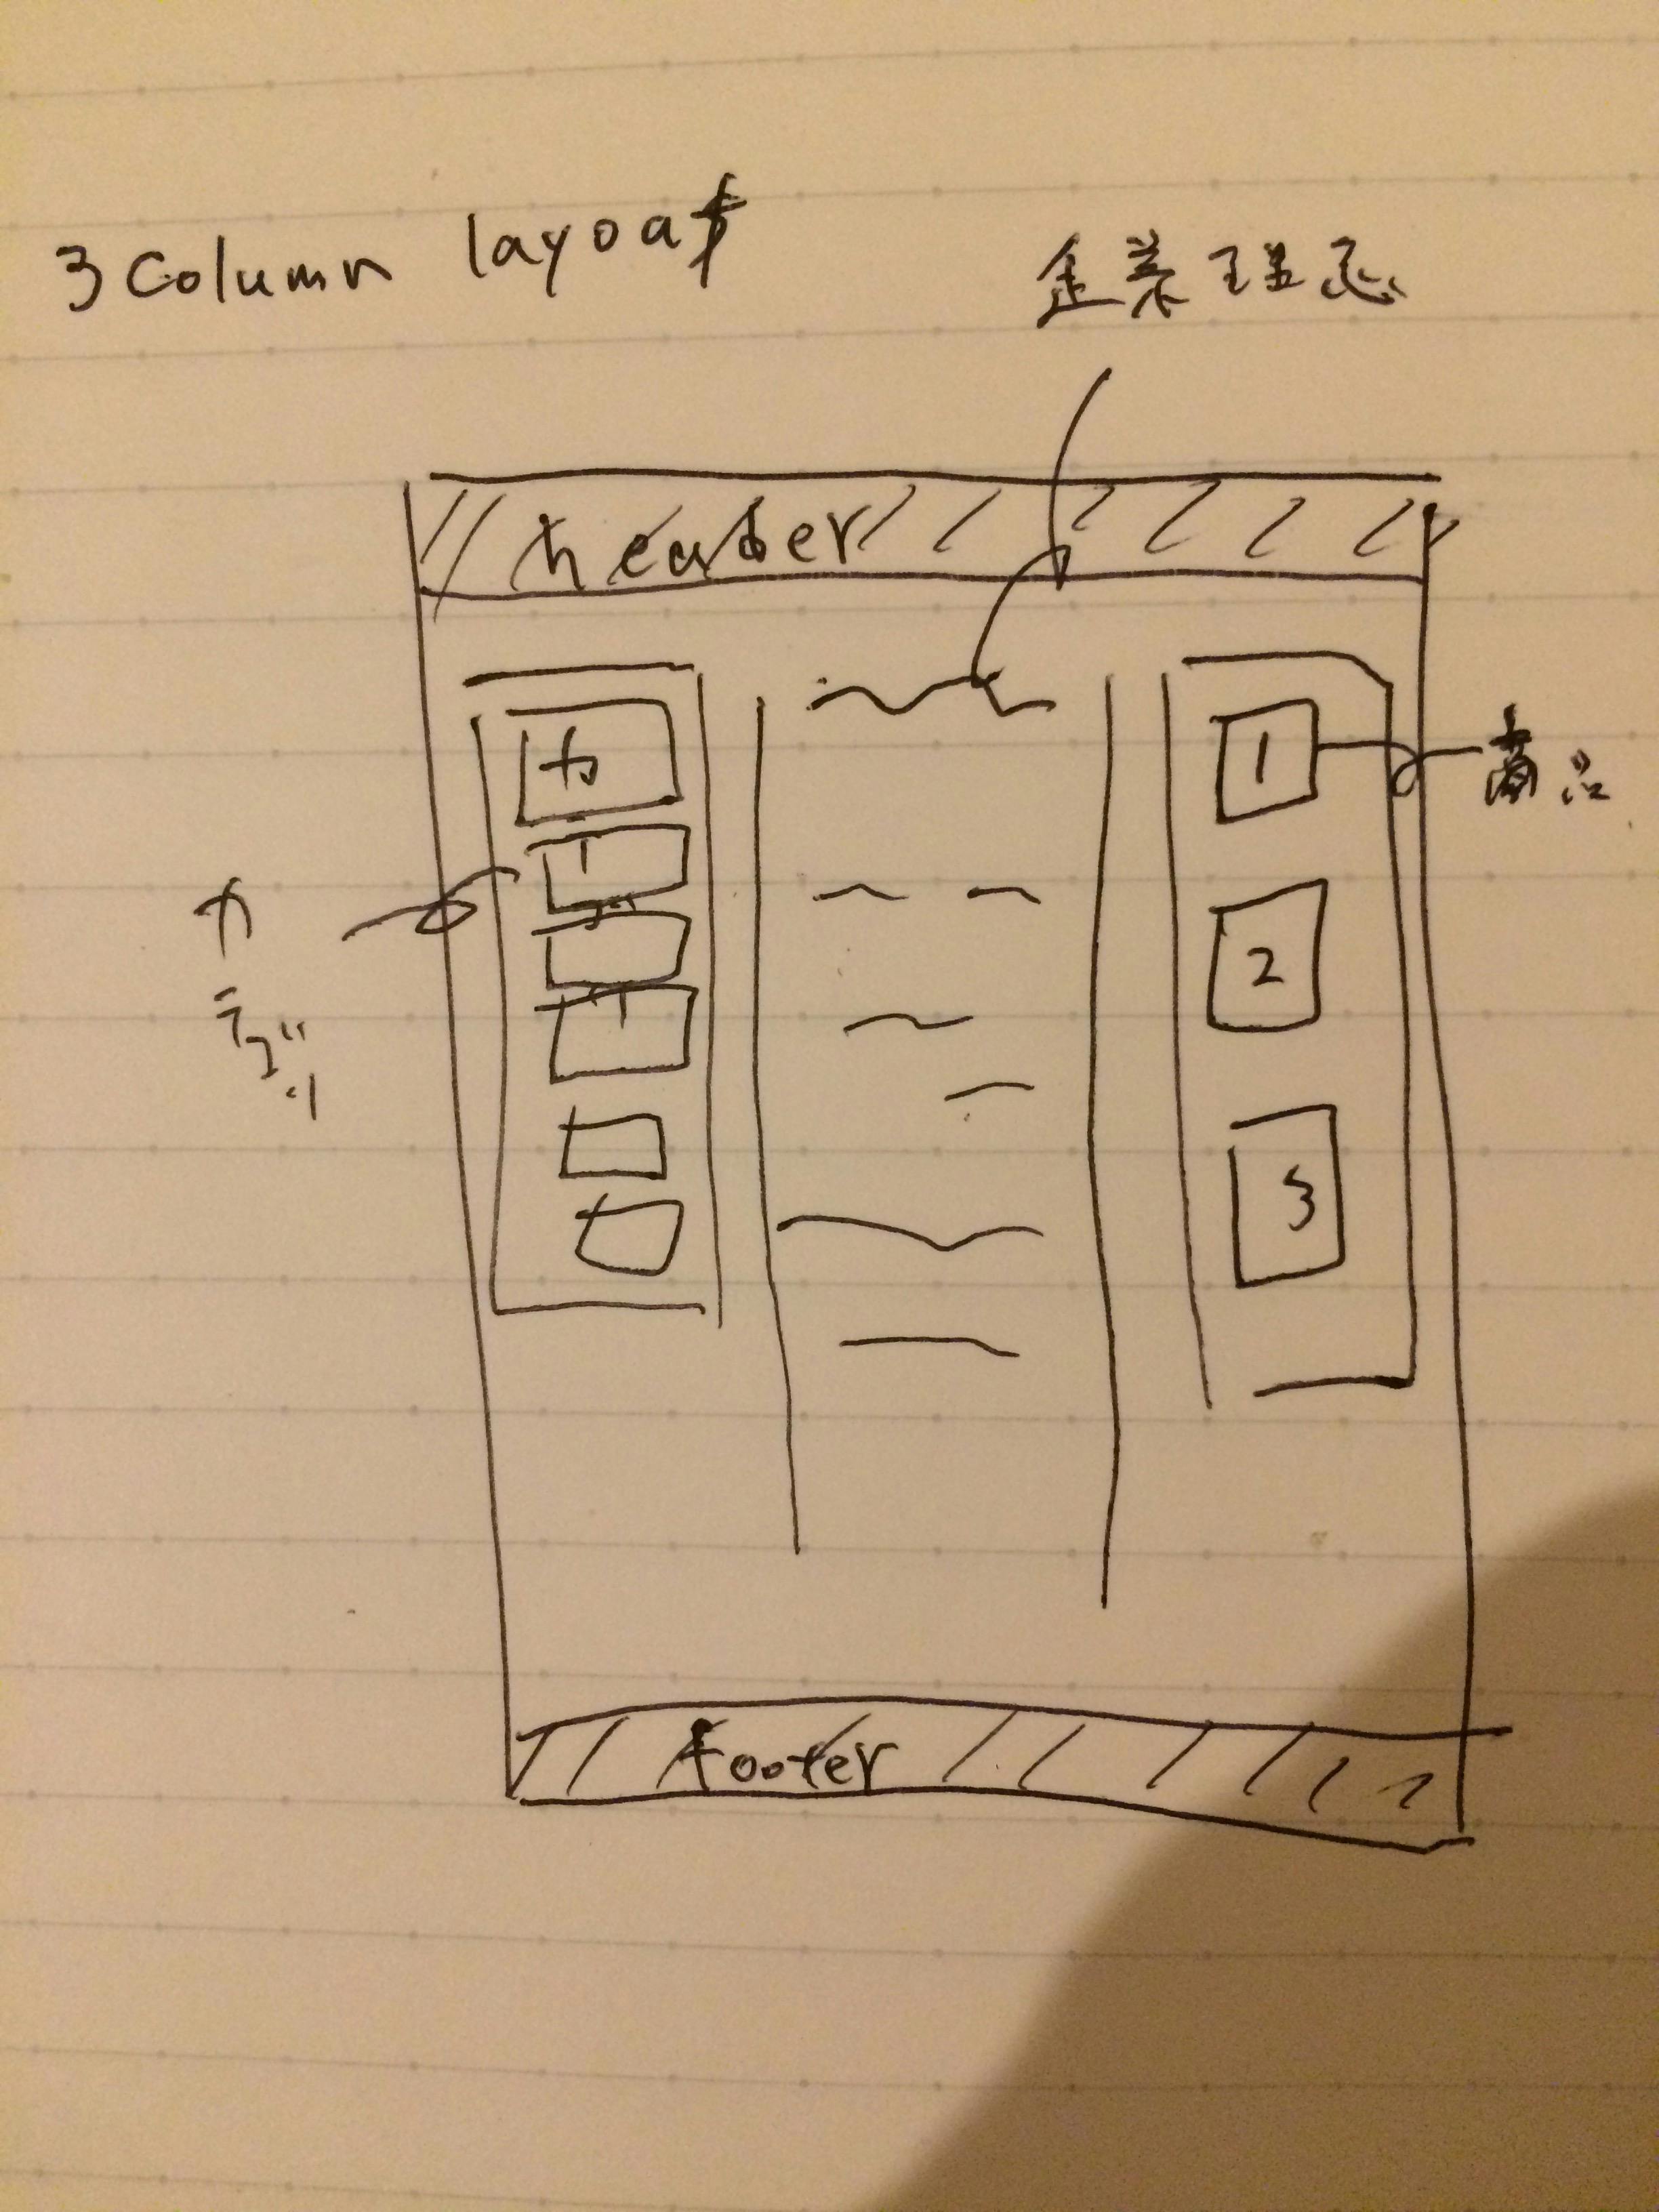 3 column layoat
企業理念
header
カ
1
商品
カ
テゴ
リ
2
3
footer